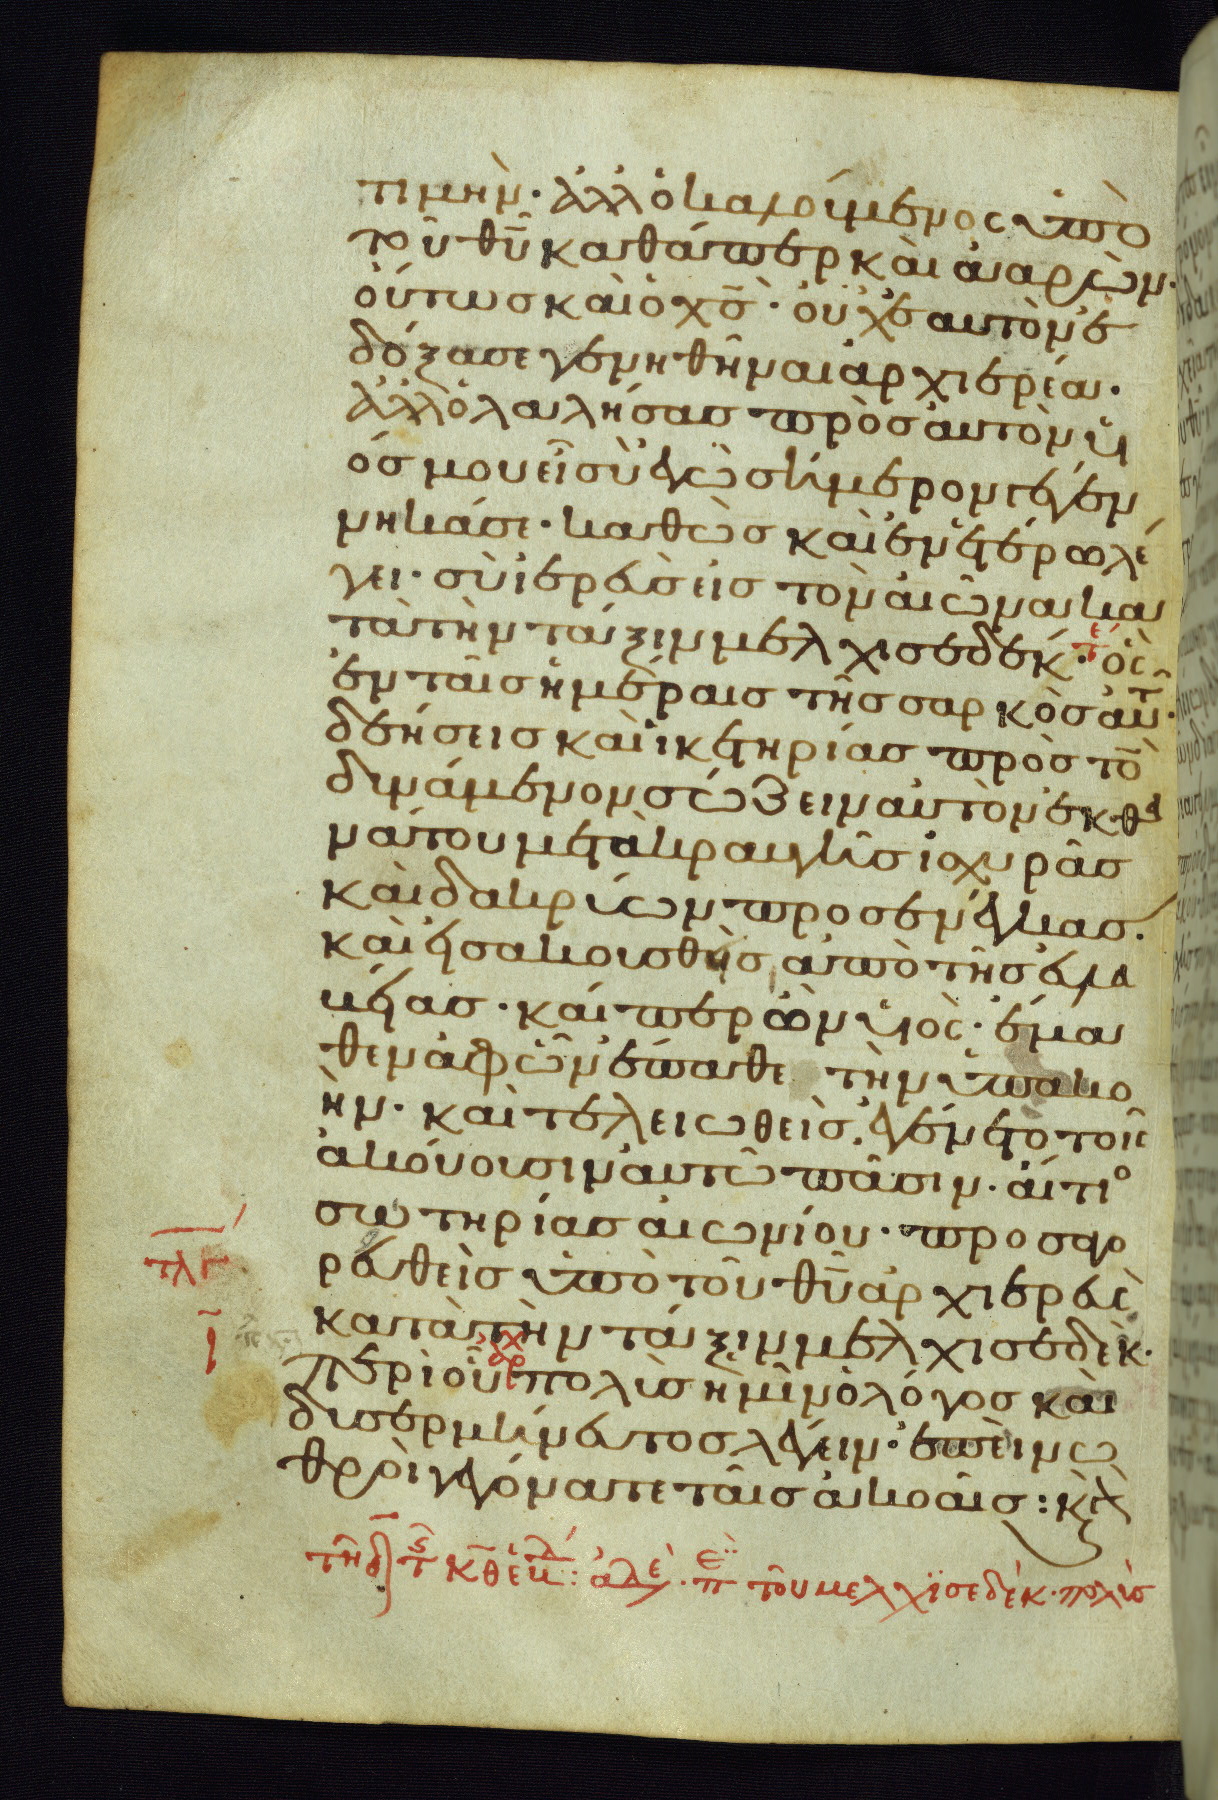 τιμὴν· ἀλλ ὁ καλούμενος ὑπὸ
τοῦ θῦ καθάπερ καὶ ἀαρὼν·
οὕτως καὶ ὁ χς̄· οὐχ ἑαυτὸν ἐ
δόξασε γενηθῆναι ἀρχιερέα·
ἀλλ ὁ λαλήσας πρὸς αὐτὸν ὑι
ός μου εἶ σὺ ἐγὼ σήμερον γεγέν
νηκά σε· καθὼς καὶ ἐν ἑτέρω λέ
γει· σὺ ἱερεὺς εἰς τὸν αἰῶνα κα
τὰ τὴν τάξιν μελχισεδέκ· ὃς
ἐν ταῖς ἡμέραις τῆς σαρκὸς αὐτ·
δεήσεις καὶ ἱκετηρίας πρὸς τὸ
δυνάμενον σώζειν αὐτὸν ἐκ θα
νάτου μετὰ κραυγῆς ἰσχυρᾶς
καὶ δακρύων προσενέγκας·
καὶ εἰσακουσθεὶς ἀπὸ τῆς εὐλα
βείας· καί περ ὢν υἱὸς· ἔμα
θεν ἀφ ὧν ἔπαθε τὴν ὑπακο
ὴν· καὶ τελειωθεὶς, ἐγένετο τοῖς
ἀκούουσιν αὐτῶ πᾶσιν· αἴτιο
σωτηρίας αἰωνίου· προσαγο
ρευθεὶς ὑπὸ τοῦ θῦ ἀρχιερεὺς
κατὰ τὴν τάξιν μελχισεδὲκ·
Περὶ οὗ πολὺς ἡμῖν ὁ λόγος καὶ
δυσερμήνευτος λέγειν· ἐπεὶ νω
θροὶ γεγόνατε ταῖς ἀκοαῖς:
τοῦ μελχϊσεδέκ· πολὺς